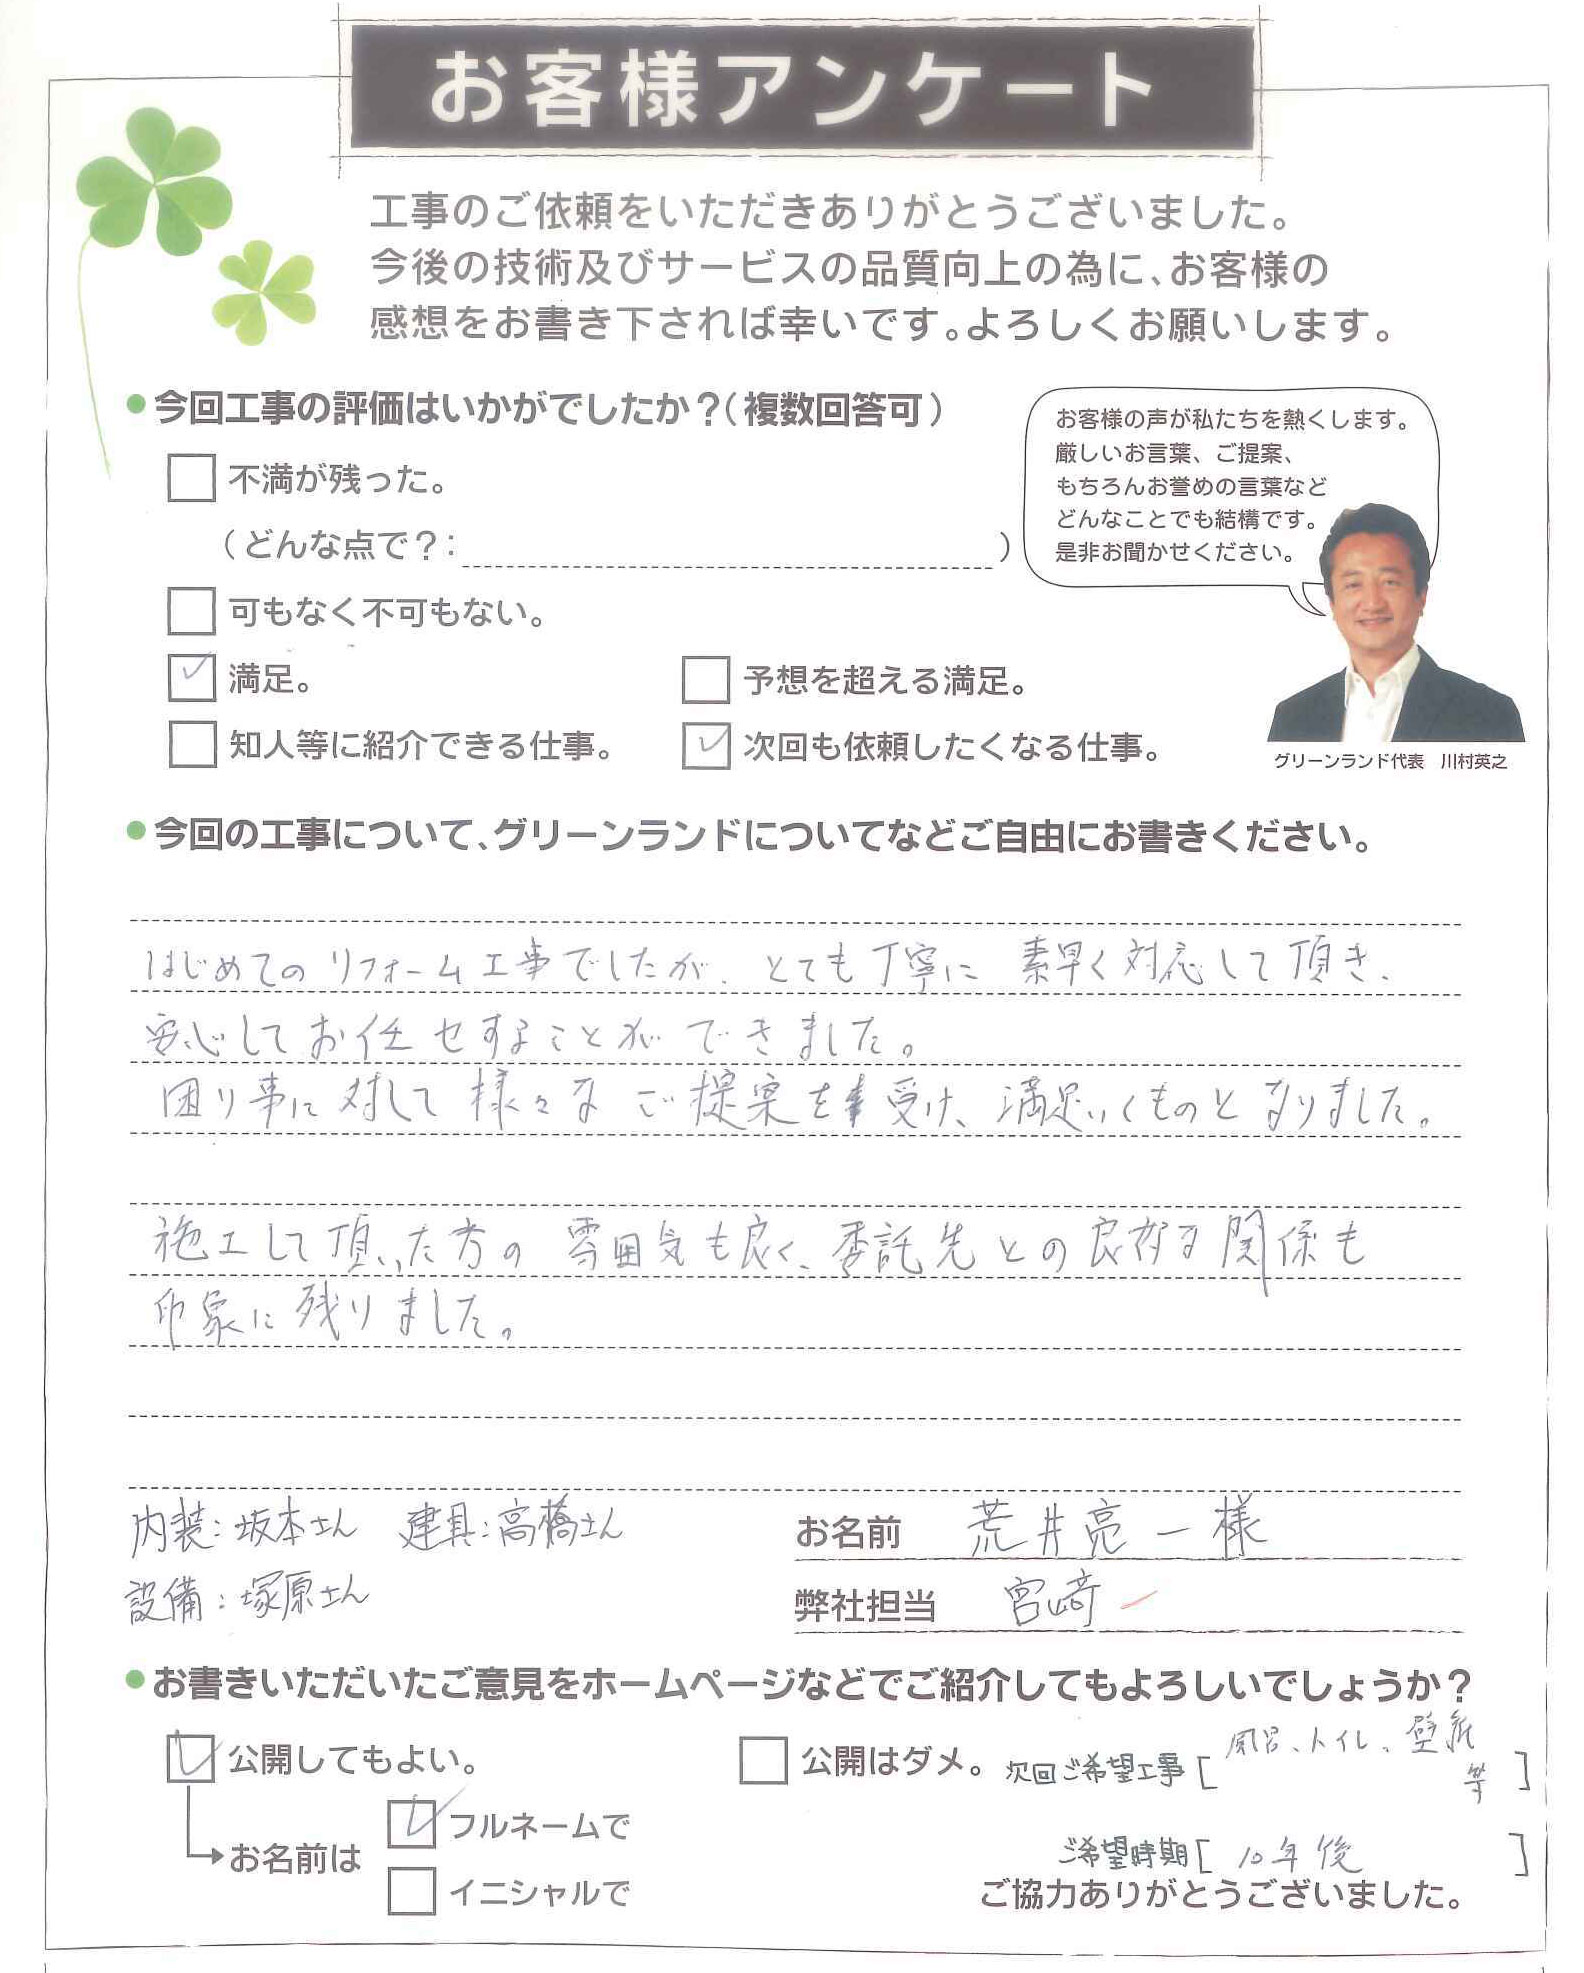 お客様アンケート
工事のご依頼をいただきありがとうございました。
今後の技術及びサービスの品質向上の為に、お客様の
感想をお書き下されば幸いです。よろしくお願いします。
今回工事の評価はいかがでしたか？（複数回答可）
不満が残った。
（どんな点で？： ）
可もなく不可もない。
満足。
予想を超える満足。
知人等に紹介できる仕事。
次回も依頼したくなる仕事。
お客様の声が私たちを熱くします。
厳しいお言葉、ご提案、
もちろんお誉めの言葉など
どんなことでも結構です。
是非お聞かせください。
グリーンランド代表 川村英之
今回の工事について、グリーンランドについてなどご自由にお書きください。
はじめてのリフォーム工事でしたが、とても丁寧に 素早く対応して頂き、
安心してお任せすることができました。
困り事に対して様々なご提案を受け、満足いくものとなりました。
施工して頂いた方の雰囲気も良く、委託先との良好な関係も
印象に残りました。
内装：坂本さん 建具：高橋さん
設備：塚原さん
お名前 荒井亮一様
弊社担当 宮崎
お書きいただいたご意見をホームページなどでご紹介してもよろしいでしょうか？
公開してもよい。
公開はダメ。
次回ご希望工事［風呂、トイレ、壁紙
等］
お名前は
フルネームで
イニシャルで
ご希望時期［10年後］
ご協力ありがとうございました。